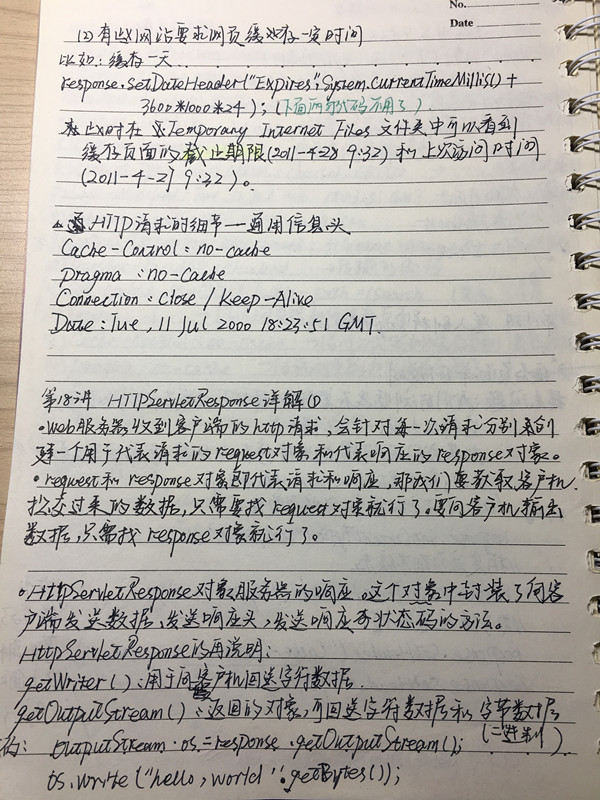 No.
Date
(2)有些网站要求网页缓存一定时间
比如:缓存一天
response.setDateHeader("Expires",System.currentTimeMillis()+
3600*1000*24);(下面两句代码不用了)
此时在 Temporary Internet Files 文件夹中可以看到
缓存页面的截止期限(2011-4-28 9:32)和上次访问时间
(2011-4-27 9:32)。
HTTP请求的细节—通用信息头
Cache-Control:no-cache
Pragma:no-cache
Connection:close/Keep-Alive
Date:Tue,11 Jul 2000 18:23:51 GMT
第18讲 HTTPServletResponse详解(1)
•web服务器收到客户端的http请求,会针对每一次请求分别来创
建一个用于代表请求的request对象和代表响应的response对象。
•request和response对象即代表请求和响应,那我们要获取客户机
提交过来的数据,只需要找request对象就行了。要向客户机输出
数据,只需找response对象就行了。
•HttpServletResponse对象服务器的响应。这个对象中封装了向客
户端发送数据,发送响应头,发送响应状态码的方法。
HttpServletResponse的再说明:
getWriter():用于向客户机回送字符数据
getOutputStream():返回的对象,可回送字符数据和字节数据
(二进制)
OutputStream os=response.getOutputStream();
os.write("hello,world".getBytes());